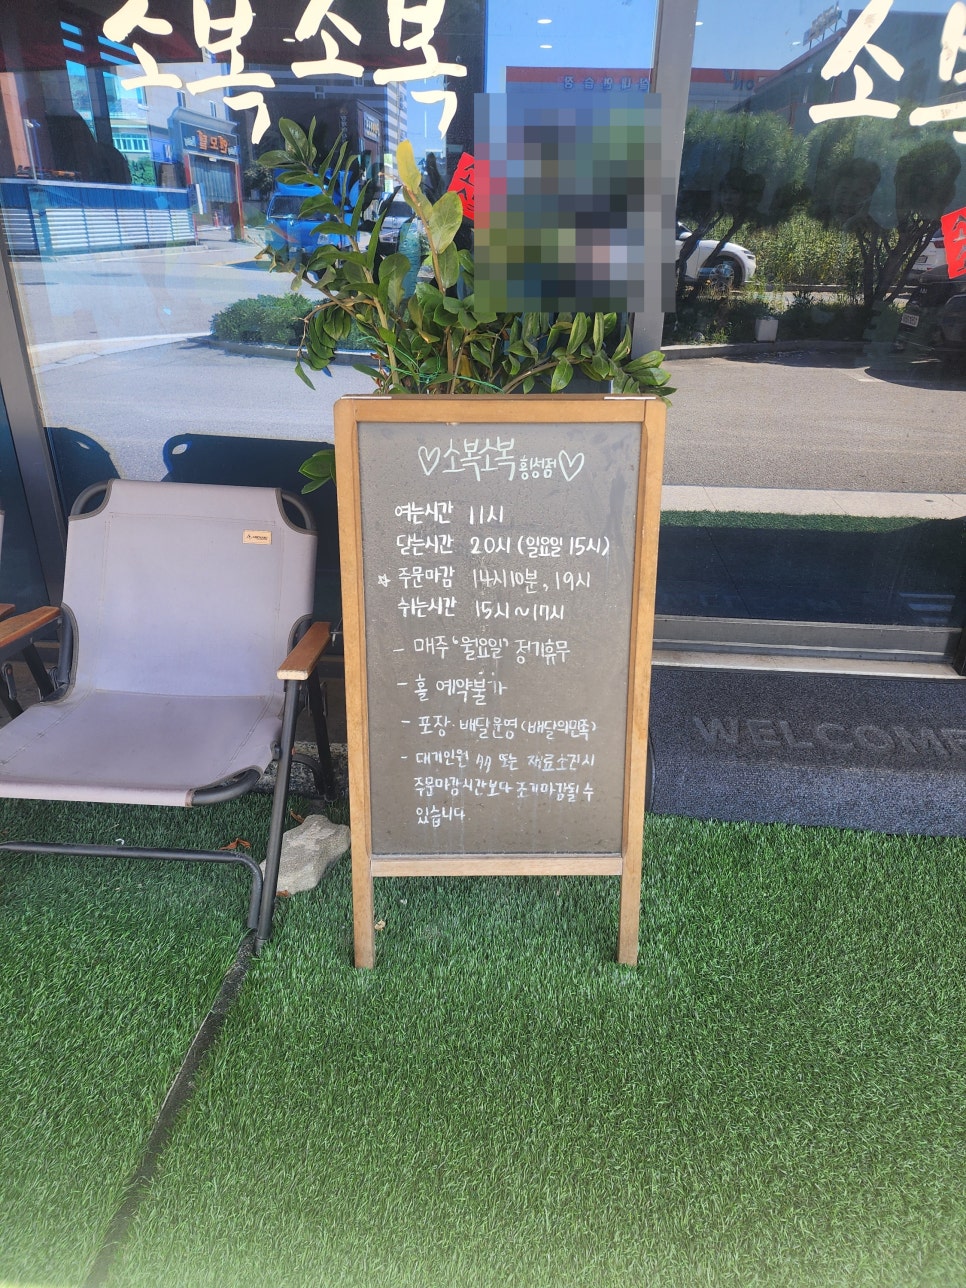 소복소복
소복
♡소복소복 횡성점♡
여는시간 11시
닫는시간 20시 (일요일 15시)
☆ 주문마감 14시10분, 19시
쉬는시간 15시~17시
- 매주 "월요일" 정기휴무
- 홀 예약불가
- 포장·배달운영 (배달의민족)
- 대기인원 多 또는 재료소진시
주문마감시간보다 조기마감될수
있습니다
WELCOME